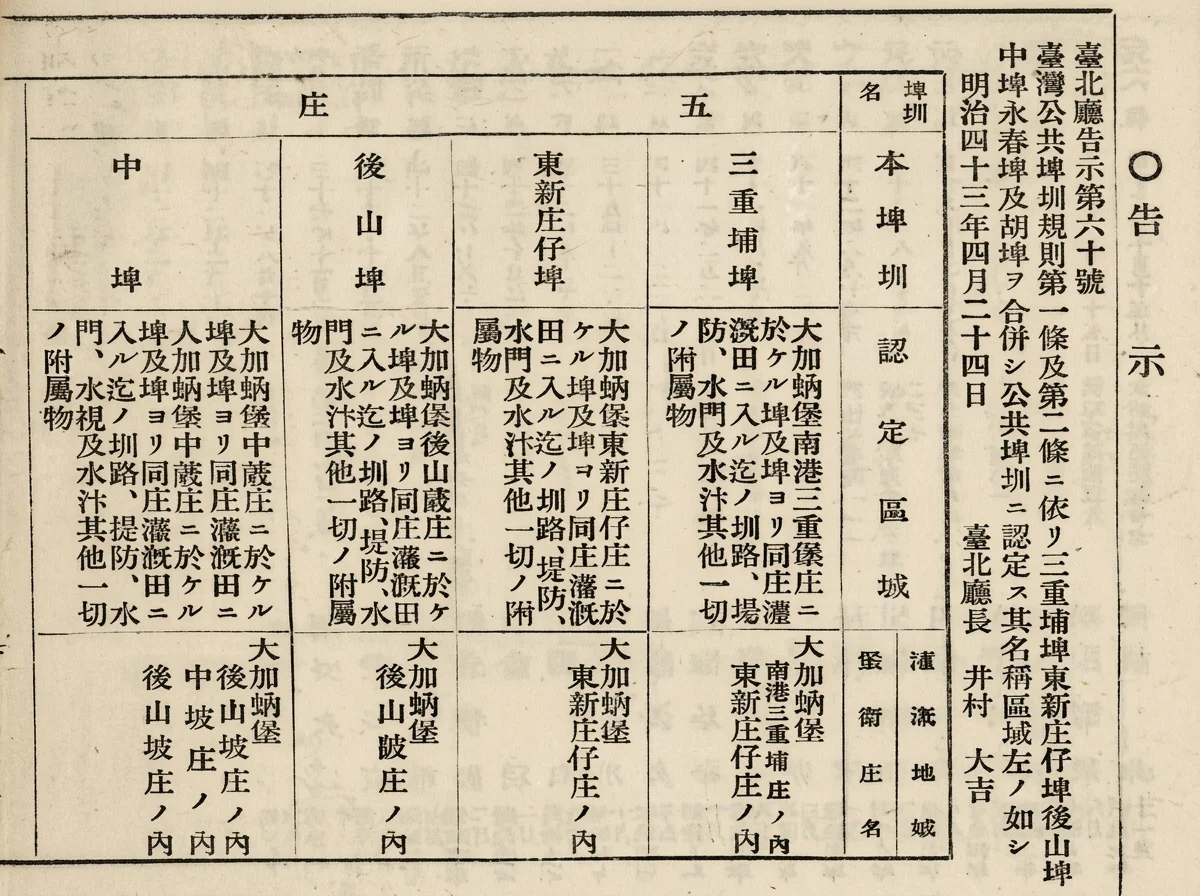 〇告示
臺北廳告示第六十號
臺灣公共埤圳規則第一條及第二條ニ依リ三重埔埤東新庄仔埤後山埤
中埤永春埤及胡埤ヲ合併シ公共埤圳ニ認定ス其名稱區域左ノ如シ
明治四十三年四月二十四日
臺北廳長 井村 大吉
埤圳
名
本埤圳
認定區域
地域
堡街庄名
五
庄
三重埔埤
大加蚋堡南港三重堡庄ニ
於ケル埤及埤ヨリ同庄灌
漑田ニ入ル迄ノ圳路、場
防、水門及水汴其他一切
ノ附屬物
大加蚋堡
南港三重埔庄ノ內
東新庄仔庄ノ內
東新庄仔埤
大加蚋堡東新庄仔庄ニ於
ケル埤及埤ヨリ同庄灌漑
田ニ入ル迄ノ圳路、堤防、
水門及水汴其他一切ノ附
屬物
大加蚋堡
東新庄仔庄ノ內
後山埤
大加蚋堡後山庄ニ於ケ
ル埤及埤ヨリ同庄灌漑田
ニ入ル迄ノ圳路、堤防、水
門及水汴其他一切ノ附屬
物
大加蚋堡
後山陂庄ノ內
中埤
大加蚋堡中庄ニ於ケル
埤及埤ヨリ同庄灌漑田ニ
人加蚋堡中庄ニ於ケル
埤及埤ヨリ同庄灌漑田ニ
入ル迄ノ圳路、提防、水
門、水視及水汴其他一切
ノ附屬物
大加蚋堡
後山坡庄ノ內
中坡庄ノ內
後山坡庄ノ內